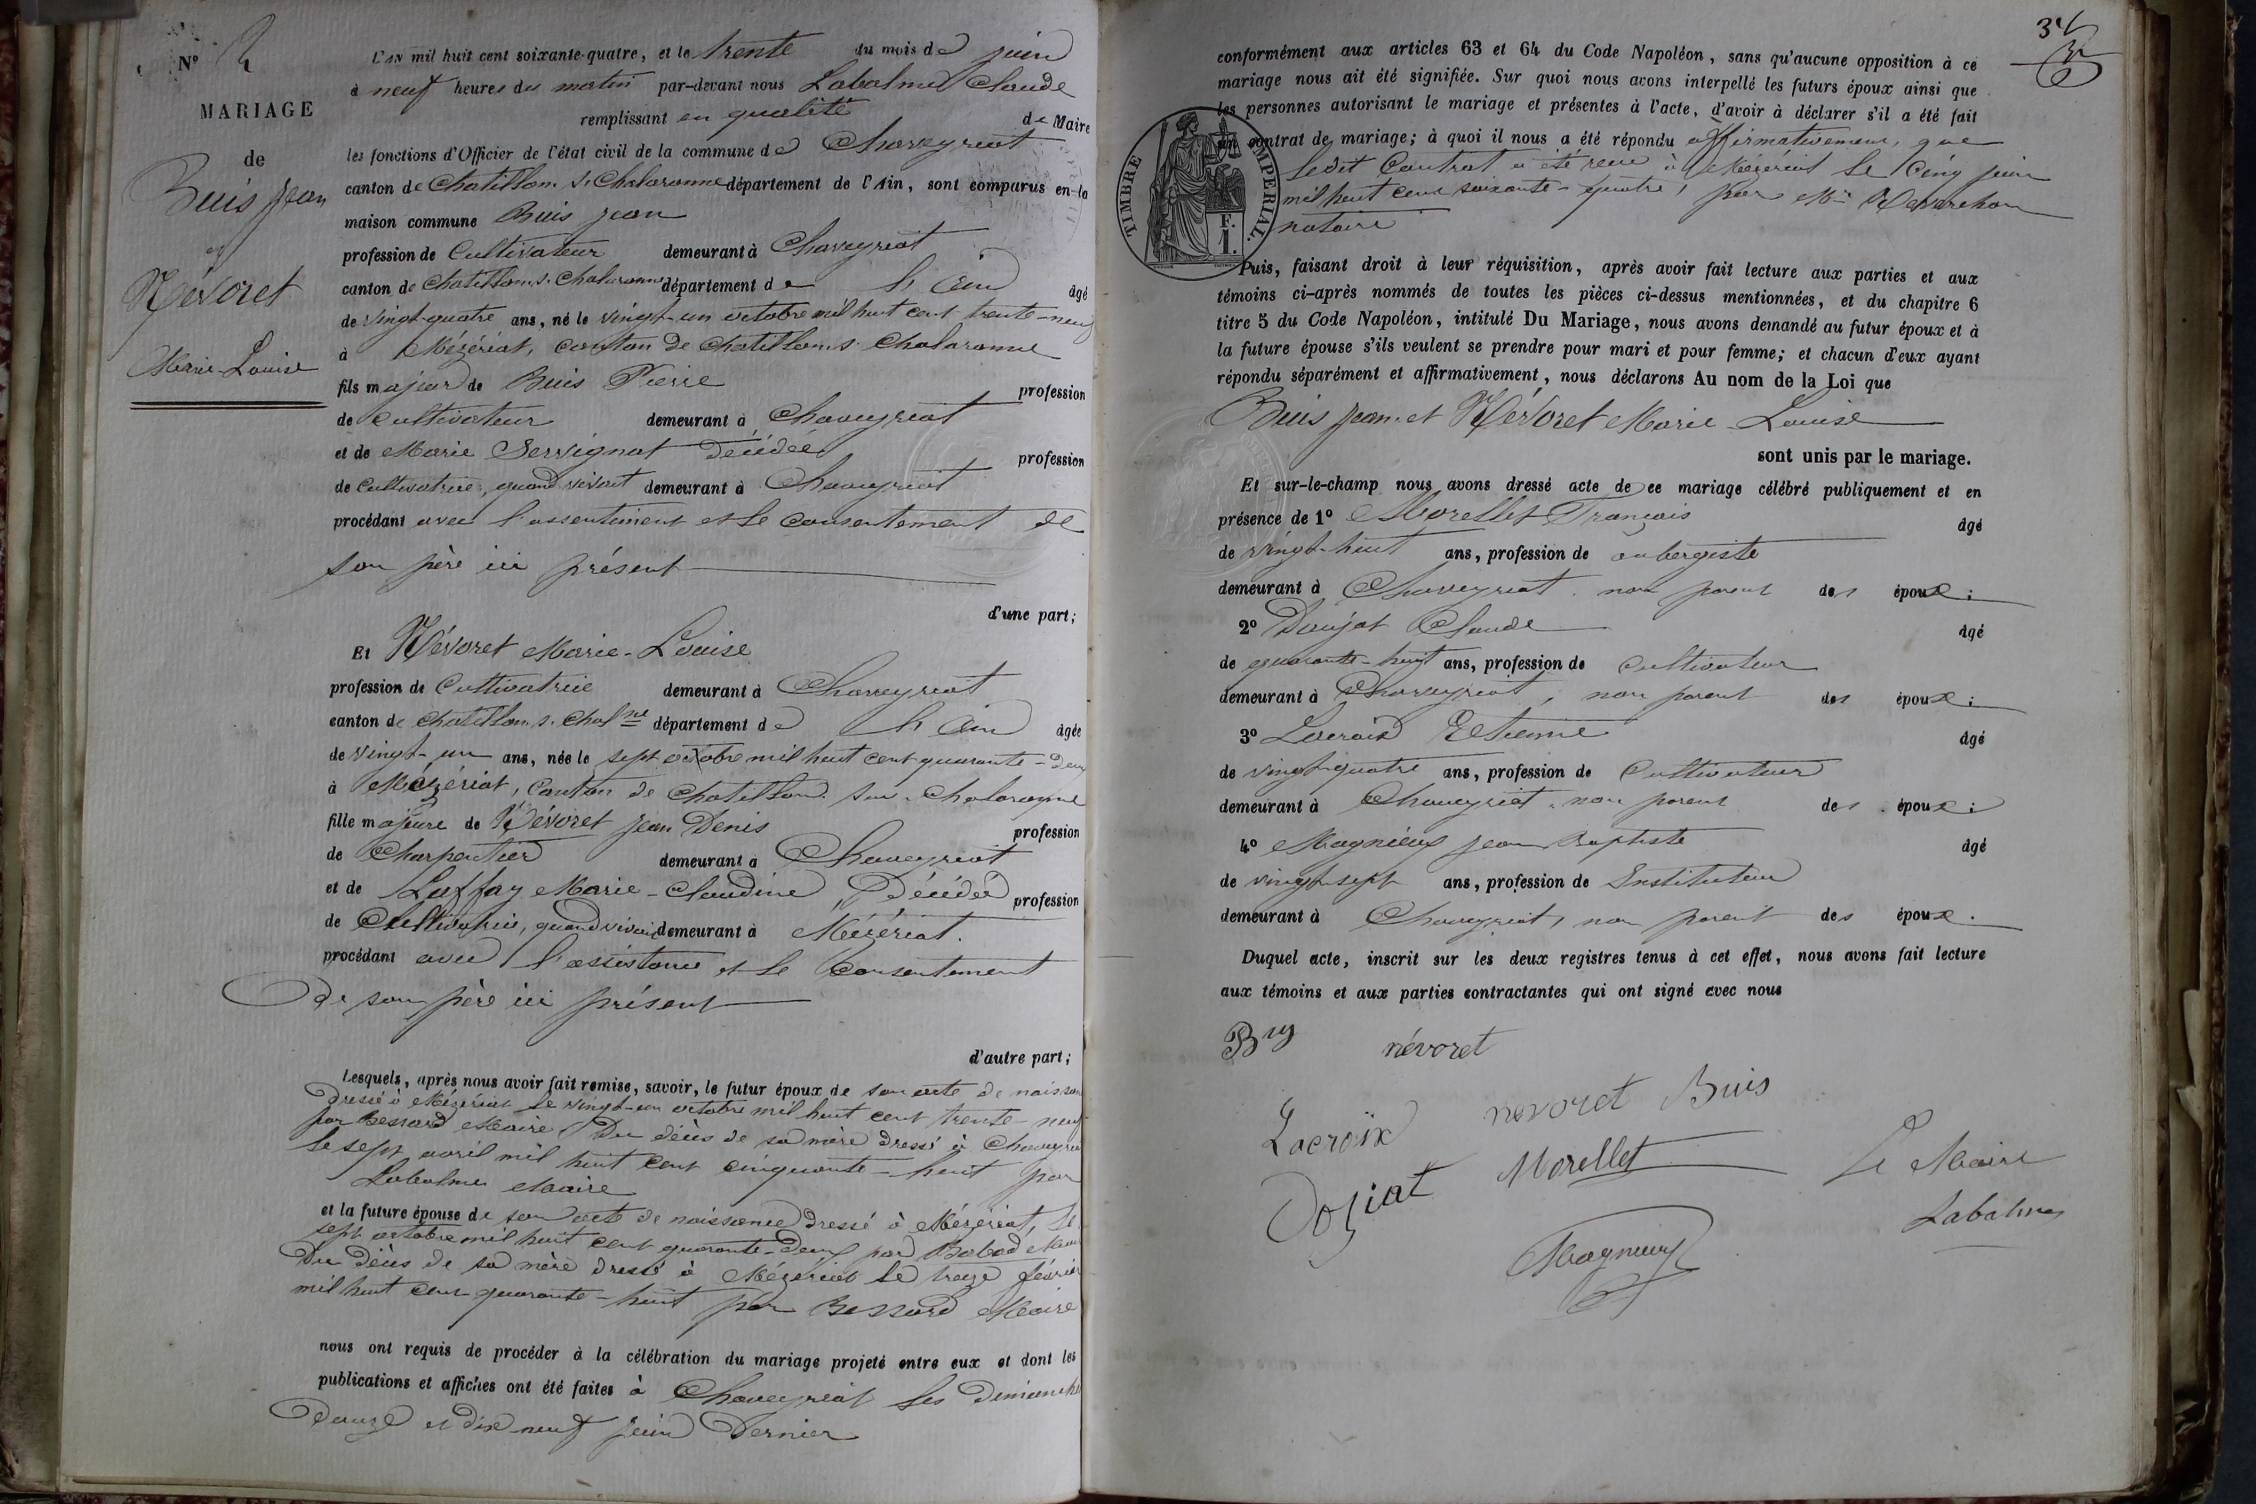 Nº 2
MARIAGE
de
Buis Jean
et
Névoret
Marie-Louise
L'AN mil huit cent soixante-quatre, et le trente du mois de juin
à neuf heures du matin par-devant nous Labalme Claude
remplissant en qualité de Maire
les fonctions d'Officier de l'état civil de la commune de Chaveyriat
canton de Chatillon s. Chalaronne département de l'Ain, sont comparus en la
maison commune Buis Jean
profession de Cultivateur demeurant à Chaveyriat
canton de Chatillon s. Chalaronne département de l'Ain âgé
de vingt-quatre ans, né le vingt-un octobre mil huit cent trente-neuf
à Mézériat, canton de Chatillon s. Chalaronne
fils majeur de Buis Pierre profession
de cultivateur demeurant à Chaveyriat
et de Marie Servignat Décédée profession
de cultivatrice, quand vivait demeurant à Chaveyriat
procédant avec l'assentiment et le consentement de
son père ici présent
d'une part;
Et Névoret Marie-Louise
profession de Cultivatrice demeurant à Chaveyriat
canton de Chatillon s. Chalne département de l'Ain âgée
de vingt-un ans, née le sept octobre mil huit cent quarante-deux
à Mézériat, Canton de Chatillon sur Chalaronne
fille majeure de Névoret Jean Denis profession
de Charpentier demeurant à Chaveyriat
et de Luffay Marie-Claudine, Décédée profession
de Cultivatrice, quand vivait demeurant à Mézériat.
procédant avec l'assistance et le Consentement
de son père ici présent
d'autre part;
Lesquels, après nous avoir fait remise, savoir, le futur époux de son acte de naissance
dressé à Mézériat le vingt-un octobre mil huit cent trente-neuf
par Bessard Maire Du décès de sa mère dressé à Chaveyriat
le sept avril mil huit cent cinquante-huit par
Labalme Maire
et la future épouse de son acte de naissance dressé à Mézériat, le
sept octobre mil huit cent quarante-deux par Babad Maire
Du décès de sa mère dressé à Mézériat le treize février
mil huit cent quarante-huit par Bessard Maire
nous ont requis de procéder à la célébration du mariage projeté entre eux et dont les
publications et affiches ont été faites à Chaveyriat les Dimanches
Douze et dix neuf juin Dernier
34
conformément aux articles 63 et 64 du Code Napoléon, sans qu'aucune opposition à ce
mariage nous ait été signifiée. Sur quoi nous avons interpellé les futurs époux ainsi que
les personnes autorisant le mariage et présentes à l'acte, d'avoir à déclarer s'il a été fait
un contrat de mariage; à quoi il nous a été répondu affirmativement, que
ledit Contrat a été reçu à Mézériat le Cinq juin
mil huit cent soixante-quatre, par Me
notaire
TIMBRE IMPÉRIAL.
F.
1.
Puis, faisant droit à leur réquisition, après avoir fait lecture aux parties et aux
témoins ci-après nommés de toutes les pièces ci-dessus mentionnées, et du chapitre 6
titre 5 du Code Napoléon, intitulé Du Mariage, nous avons demandé au futur époux et à
la future épouse s'ils veulent se prendre pour mari et pour femme; et chacun d'eux ayant
répondu séparément et affirmativement, nous déclarons Au nom de la Loi que
Buis Jean et Névoret Marie-Louise
sont unis par le mariage.
Et sur-le-champ nous avons dressé acte de ce mariage célébré publiquement et en
présence de 1º Morellet François âgé
de vingt-huit ans, profession de aubergiste
demeurant à Chaveyriat, non parent des époux;
2º Claude âgé
de quarante-huit ans, profession de cultivateur
demeurant à Chaveyriat, non parent des époux;
3º Lacroix Etienne âgé
de vingt-quatre ans, profession de Cultivateur
demeurant à Chaveyriat, non parent des époux;
4º Magnieux Jean Baptiste âgé
de vingt-sept ans, profession de Instituteur
demeurant à Chaveyriat, non parent des époux.
Duquel acte, inscrit sur les deux registres tenus à cet effet, nous avons fait lecture
aux témoins et aux parties contractantes qui ont signé avec nous
Buy névoret
Lacroix nevoret Buis
Morellet Le Maire
Labalme
Magnieux